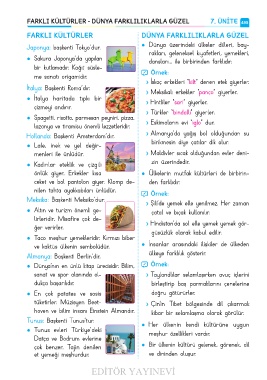 FARKLI KÜLTÜRLER - DÜNYA FARKLILIKLARLA GÜZEL 7. ÜNİTE
FARKLI KÜLTÜRLER
Japonya: başkenti Tokyo'dur.
Sakura Japonya'da yapılan
bir kutlamadır. Kağıt süsle-
me sanatı origamidir.
İtalya: Başkenti Roma'dır.
İtalya haritada tıpkı bir
çizmeyi andırır.
Spagetti, risotto, parmesan peyniri, pizza,
lazanya ve tiramisu önemli lezzetleridir.
Hollanda: Başkenti Amsterdam'dır.
Lale, inek ve yel değir-
menleri ile ünlüdür.
Kadınlar eteklik ve çizgili
önlük giyer. Erkekler kısa
ceket ve bol pantolon giyer. Klomp de-
nilen tahta ayakkabıları ünlüdür.
Meksika: Başkenti Meksiko'dur.
Altın ve turizm önemli ge-
lirleridir. Misafire çok de-
ğer verirler.
Taco meşhur yemekleridir. Kırmızı biber
ve kaktüs ülkenin sembolüdür.
Almanya: Başkenti Berlin'dir.
Dünyanın en ünlü kitap üreticisidir. Bilim,
sanat ve spor alanında ol-
dukça başarılıdır.
En çok patates ve sosis
tüketirler. Müzisyen Beet-
hoven ve bilim insanı Einstein Almandır.
Tunus: Başkenti Tunus'tur.
Tunus evleri Türkiye'deki
Datça ve Bodrum evlerine
çok benzer. Tajin denilen
et yemeği meşhurdur.
DÜNYA FARKLILIKLARLA GÜZEL
Dünya üzerindeki ülkeler dilleri, bay-
rakları, geleneksel kıyafetleri, yemekleri,
dansları... ile birbirinden farklıdır.
Örnek:
İskoç erkekleri "kilt" denen etek giyerler.
Meksikalı erkekler "panço" giyerler.
Hintliler "sari" giyerler.
Türkler "bindallı" giyerler.
Eskimoların evi "iglo" dur.
Almanya'da yağış bol olduğundan su
birikmesin diye çatılar dik olur.
Maldivler sıcak olduğundan evler deni-
zin üzerindedir.
Ülkelerin mutfak kültürleri de birbirin-
den farklıdır.
Örnek:
Şili'de yemek elle yenilmez. Her zaman
çatal ve bıçak kullanılır.
Hindistan'da sol elle yemek yemek gör-
güsüzlük olarak kabul edilir.
İnsanlar arasındaki ilişkiler de ülkeden
ülkeye farklılık gösterir.
Örnek:
Taylandlılar selamlaşırken avuç içlerini
birleştirip baş parmaklarını çenelerine
doğru götürürler.
Çin'in Tibet bölgesinde dil çıkarmak
kibar bir selamlaşma olarak görülür.
Her ülkenin kendi kültürüne uygun
meşhur özellikleri vardır.
Bir ülkenin kültürü gelenek, görenek, dil
ve dininden oluşur.
EDİTÖR YAYINEVİ